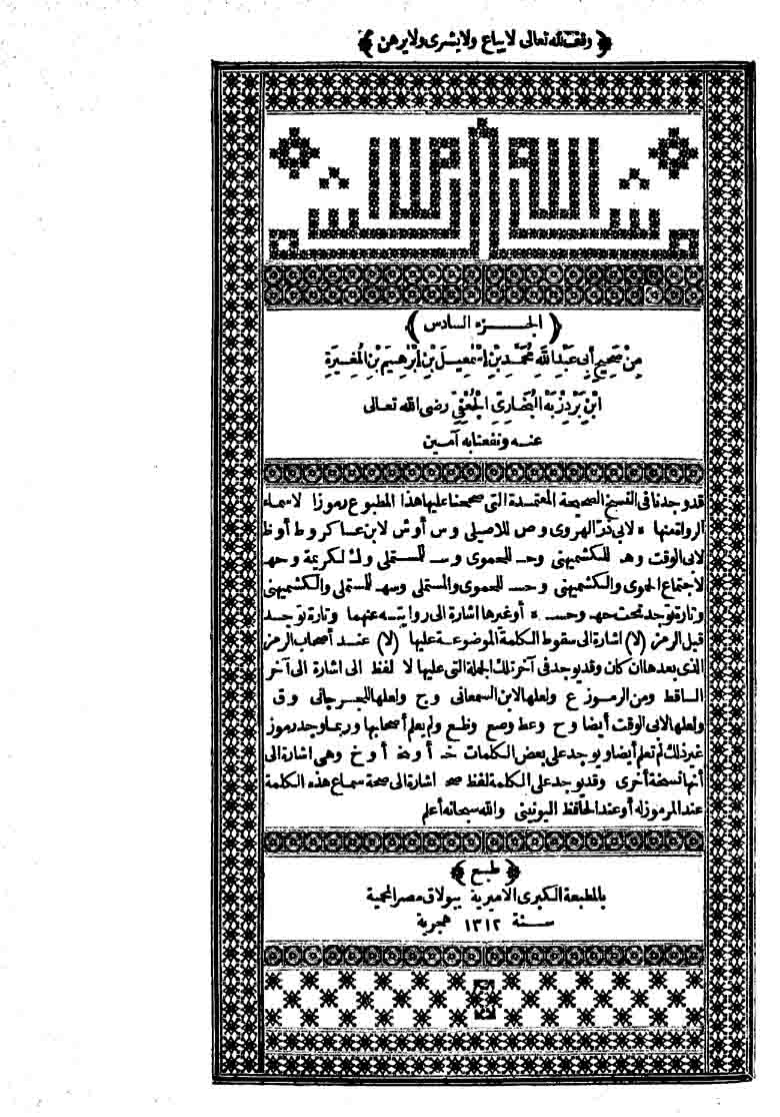 ﴿ وقف لله تعالى لا يباع ولا يشرى ولا يرهن ﴾
بسم الله الرحمن
﴿ الجزء السادس ﴾
مِنْ صَحِيحِ أَبِي عَبْدِ اللهِ مُحَمَّدِ بْنِ إِسْمٰعِيلَ بْنِ إِبْرٰهِيمَ بْنِ الْمُغِيرَةِ
ابْنِ بَرْدِزْبَه الْبُخَارِيِّ الْجُعْفِيِّ رضى الله تعالى
عنه ونفعنا به آمين
قد وجدنا فى النسخ الصحيحة المعتمدة التى صححنا عليها هذا المطبوع رموزا لاسماء
الرواة منها ه لابى ذر الهروى و ص للاصيلى و س أو ش لابن عساكر و ط أو ظ
لابى الوقت و هـ للكشميهنى و حـ للحموى و ســ للمستملى و ك لكريمة و حهـ
لاجتماع الحموى والكشميهنى و حســ للحموى والمستملى و سهـ للمستملى والكشميهنى
وتارة توجد تحت حهـ و حســ ه أو غيرها اشارة الى روايته عنهما وتارة توجد
قبل الرمز (لا) اشارة الى سقوط الكلمة الموضوعة عليها (لا) عند أصحاب الرمز
الذى بعدها ان كان وقد يوجد فى آخر تلك الجملة التى عليها لا لفظ الى اشارة الى آخر
الساقط ومن الرموز ع ولعلها لابن السمعانى و ج ولعلها للجرجانى و ق
ولعلها لابى الوقت أيضا و ح و عط و صع و ظع ولم يعلم أصحابها وربما وجد رموز
غير ذلك لم تعلم أيضا ويوجد على بعض الكلمات خـ أو خ وهى اشارة الى
أنها نسخة أخرى وقد يوجد على الكلمة لفظ صح اشارة الى صحة سماع هذه الكلمة
عند المرموز له أو عند الحافظ اليونينى والله سبحانه أعلم
﴿ طبع ﴾
بالمطبعة الكبرى الاميرية ببولاق مصر المحمية
سنة ١٣١٢ هجرية